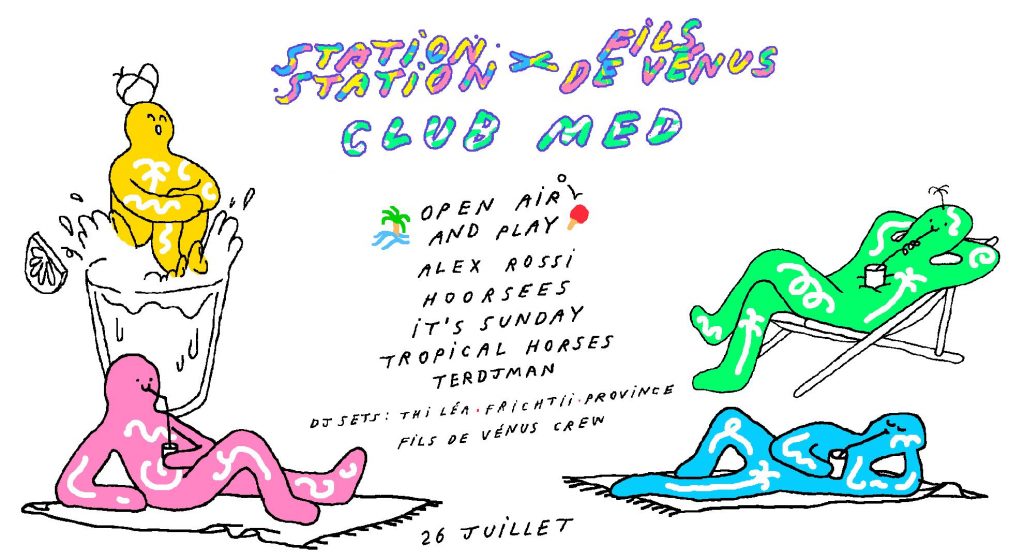 STATION STATION × FILS DE VÉNUS
CLUB MED
OPEN AIR
AND PLAY
ALEX ROSSI
HOORSEES
iT'S SUNDAY
TROPICAL HORSES
TERDJMAN
DJ SETS: THI LÉA · FRICHTII · PROVINCE
FILS DE VÉNUS CREW
26 JUILLET